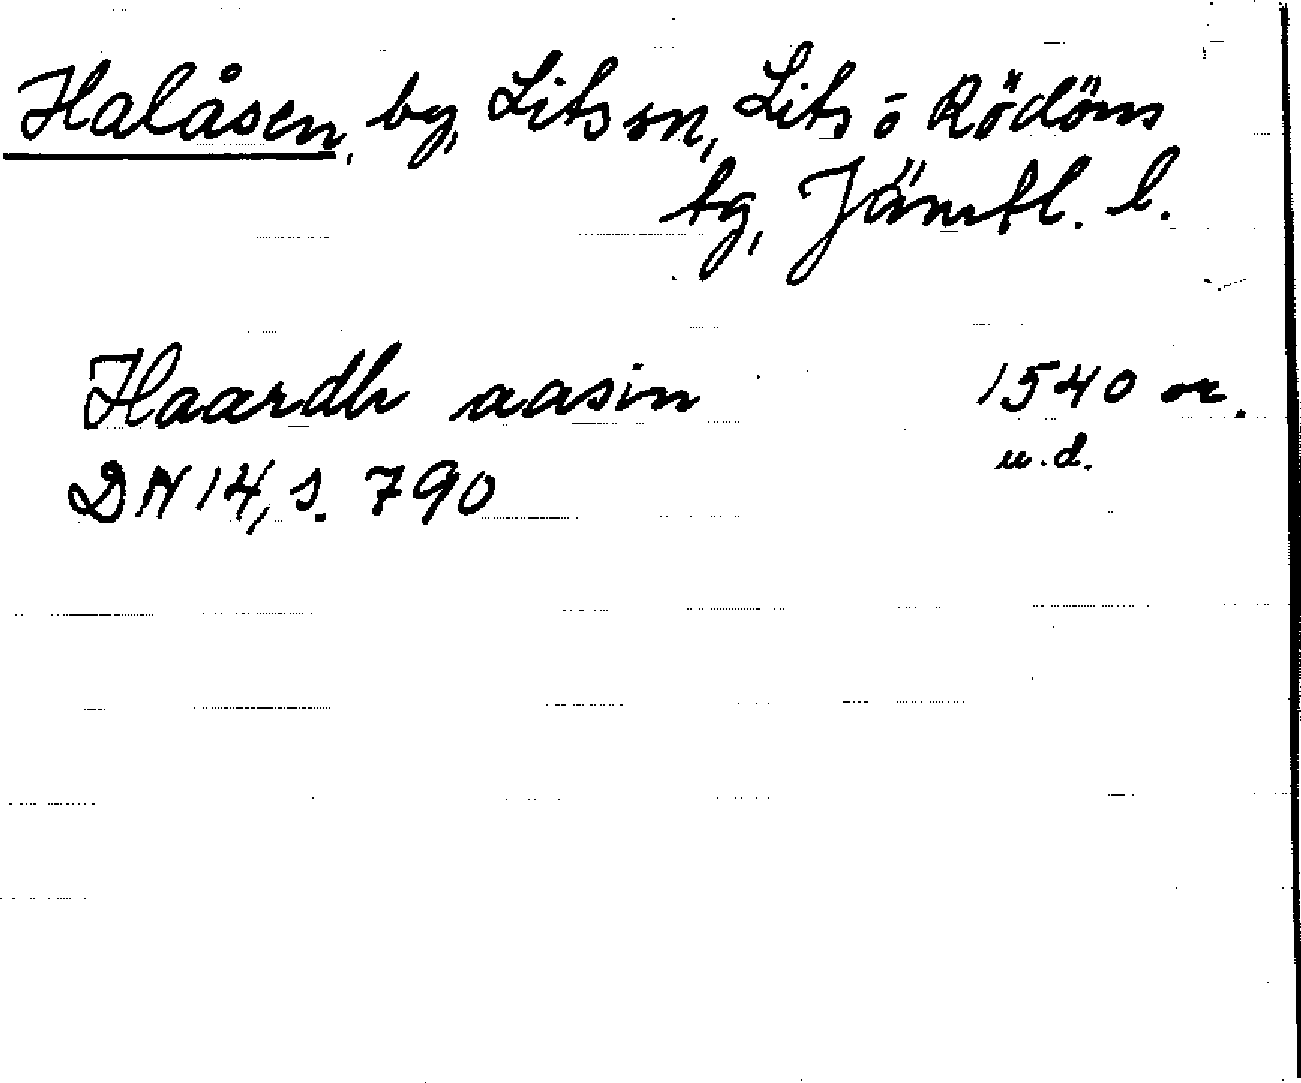 Halåsen, by, Lits sn, Lits ō Rödöns
tg, Jämtl. l.
Haardh aasin 1540 or.
u.d.
DN 14, s. 790